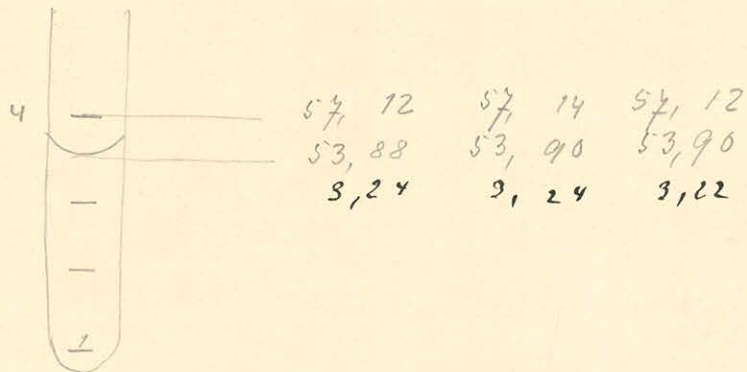 4
57, 12 57, 14 57, 12
53, 88 53, 90 53, 90
3,24 3, 24 3,22
1